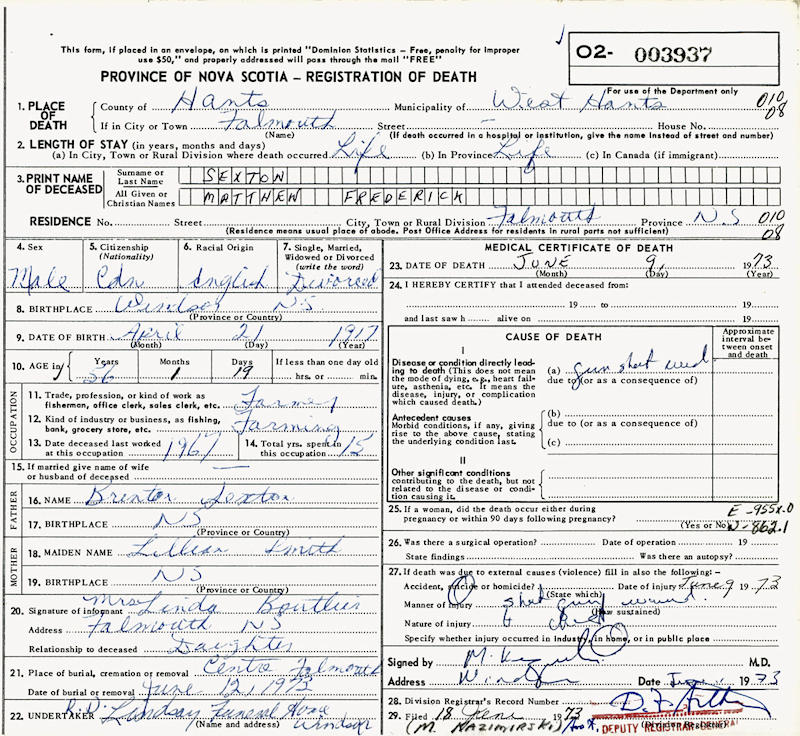 This form, if placed in an envelope, on which is printed "Dominion Statistics – Free, penalty for improper
use $50," and properly addressed will pass through the mail "FREE"
O2- 003937
PROVINCE OF NOVA SCOTIA – REGISTRATION OF DEATH
For use of the Department only
1. PLACE OF DEATH County of Hants Municipality of West Hants 010
If in City or Town Falmouth Street – House No. 08
(Name) (If death occurred in a hospital or institution, give the name instead of street and number)
2. LENGTH OF STAY (in years, months and days)
(a) In City, Town or Rural Division where death occurred Life (b) In Province Life (c) In Canada (if immigrant)
3. PRINT NAME OF DECEASED Surname or Last Name SEXTON
All Given or Christian Names MATTHEW FREDERICK
RESIDENCE No. Street City, Town or Rural Division Falmouth Province NS 010
(Residence means usual place of abode. Post Office Address for residents in rural parts not sufficient) 08
4. Sex 5. Citizenship (Nationality) 6. Racial Origin 7. Single, Married, Widowed or Divorced (write the word)
Male Cdn English Divorced
8. BIRTHPLACE Windsor NS
(Province or Country)
9. DATE OF BIRTH April 21 1917
(Month) (Day) (Year)
10. AGE in Years Months Days If less than one day old
56 1 19 hrs. or min.
OCCUPATION
11. Trade, profession, or kind of work as
fisherman, office clerk, sales clerk, etc. Farmer
12. Kind of industry or business, as fishing,
bank, grocery store, etc. Farming
13. Date deceased last worked at this occupation 1967 14. Total yrs. spent in this occupation 15
15. If married give name of wife
or husband of deceased –
FATHER
16. NAME Brenton Sexton
17. BIRTHPLACE NS
(Province or Country)
MOTHER
18. MAIDEN NAME Lillian Smith
19. BIRTHPLACE NS
(Province or Country)
20. Signature of informant Mrs Linda Boutlier
Address Falmouth NS
Relationship to deceased Daughter
21. Place of burial, cremation or removal Centre Falmouth
Date of burial or removal June 12, 1973
22. UNDERTAKER Lindsay Funeral Home
(Name and address) Windsor
MEDICAL CERTIFICATE OF DEATH
23. DATE OF DEATH JUNE 9, 1973
(Month) (Day) (Year)
24. I HEREBY CERTIFY that I attended deceased from:
19 to 19
and last saw h alive on 19
CAUSE OF DEATH
Approximate interval between onset and death
I
Disease or condition directly lead-
ing to death (This does not mean
the mode of dying, e.g., heart fail-
ure, asthenia, etc. It means the
disease, injury, or complication
which caused death.)
(a) gun shot
due to (or as a consequence of)
Antecedent causes
Morbid conditions, if any, giving
rise to the above cause, stating
the underlying condition last.
(b)
due to (or as a consequence of)
(c)
II
Other significant conditions
contributing to the death, but not
related to the disease or condi-
tion causing it.
25. If a woman, did the death occur either during
pregnancy or within 90 days following pregnancy?
(Yes or No)
E-955X.0
N-862.1
26. Was there a surgical operation? Date of operation 19
State findings Was there an autopsy?
27. If death was due to external causes (violence) fill in also the following:–
Accident, suicide or homicide? Date of injury June 9 1973
(State which)
Manner of injury shot gun wound
(How sustained)
Nature of injury
Specify whether injury occurred in industry, in home, or in public place
Signed by M.D.
Address Date June 1973
28. Division Registrar's Record Number
29. Filed 18 June 1973
(M. NAZIMIRSKI)
DEPUTY REGISTRAR-GENERAL